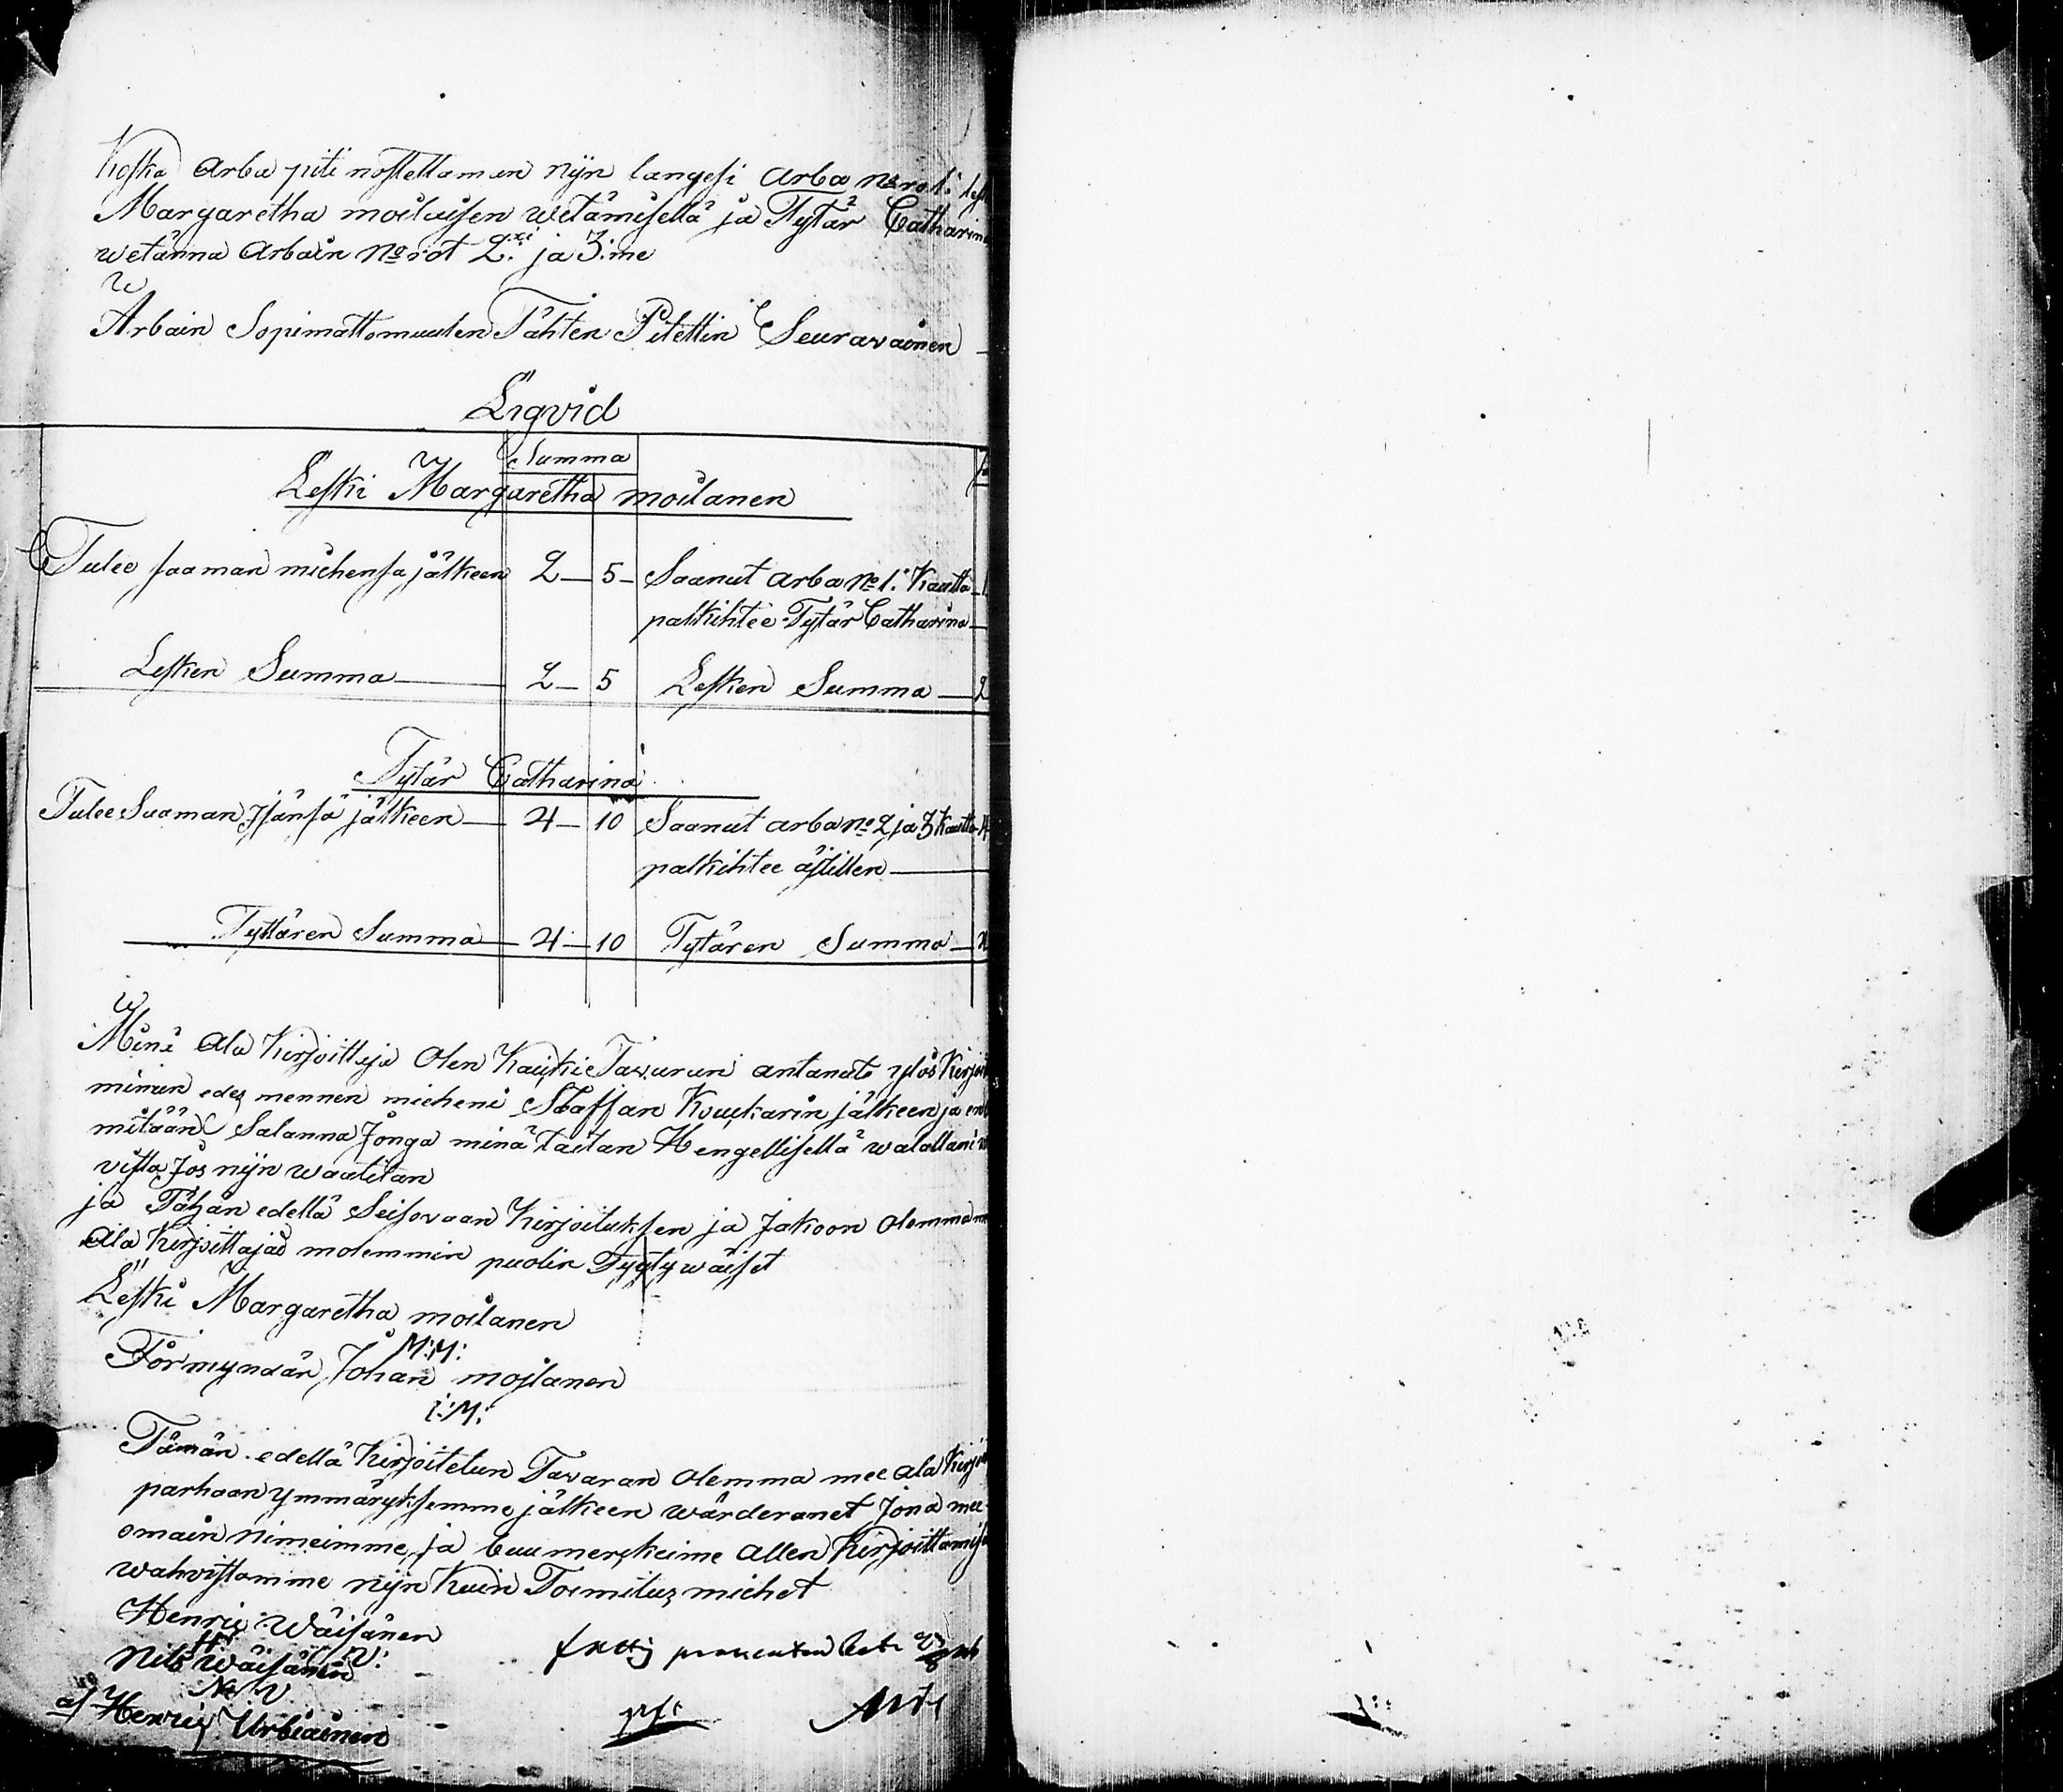 Koska Arba piti nostettaman nijn langesi arba N:ro 1:
Margaretha moilaisen wetämisellä ja Tytär Catharina
wetänna Arbain N:rot 2:xi ja 3:me
Arbain Sopimattomuuten Tähten Pitettin Seurawainen
Liqvid
Summa
Leski Margaretha moilanen
Tulee saaman miehensä jälkeen 2 — 5 — Saanut arba No 1: Kautta
palkihtee Tytär Catharina
Lesken Summa 2 — 5 Lesken Summa — 2
Tytär Catharina
Tulee Saaman Isänsä jälkeen 4 — 10 Saanut arba No 2 ja 3 Kautta
palkihtee äitillen
Tyttären Summa 4 — 10 Tytären Summa
Minä Ala Kirjoittaja Olen Kaicki Tawarani antanut ylös
minun edes mennen mieheni Staffan Kuckarin jälkeen ja
mitään Salanna Jonga minä taitan Hengellisellä walallani
vista Jos nijn waatitan
ja Tähän edellä Seisowaan Kirjoituksen ja Jakoon olemma
Ala Kirjoittajad molemmin puolin Tyytywäiset
Leski Margaretha moilanen
M:M:
Förmyndär Johan moilanen
I:M:
Tämän edellä Kirjoitetun Tavaran Olemma mee ala
parhaan ymmäryksemme jälkeen wärderanet Jona mee
omain nimeimme ja buumerkeime allen Kirjoittamisen
wahvistamme nijn Kuin Toimitus miehet
Henric Wäisänen
H: V:
Nils Wäisänen
N: V
af Henric Urbiainen